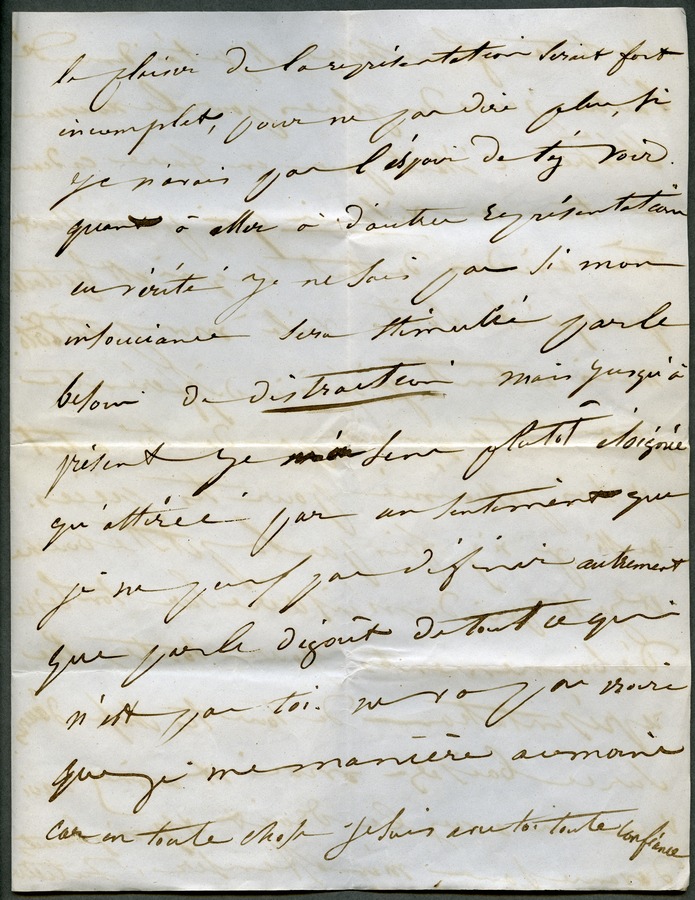 le plaisir de la représentation serait fort
incomplet, pour ne pas dire plus, si
je n'avais pas l'éspoir de t'y voir.
quant à aller à d'autres représentations
en vérité je ne sais pas si mon
insouciance sera stimulée par le
besoin de distraction mais jusqu'à
présent je me sens plutôt éloignée
qu'attirée par un sentiment que
je ne puis pas définir autrement
que par le dégoût de tout ce qui
n'est pas toi. ne va pas croire
que je me manière au moins
car en toute chose je suis avec toi toute confiance